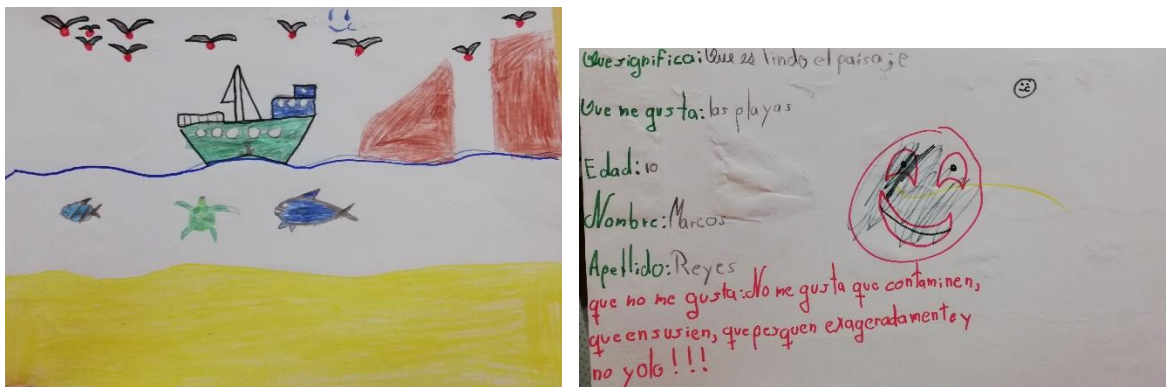 Que significa: Que es lindo el paisaje
Que me gusta: las playas
Edad: 10
Nombre: Marcos
Apellido: Reyes
que no me gusta: No me gusta que contaminen,
que ensusien, que pesquen exageradamente y
no yolo!!!